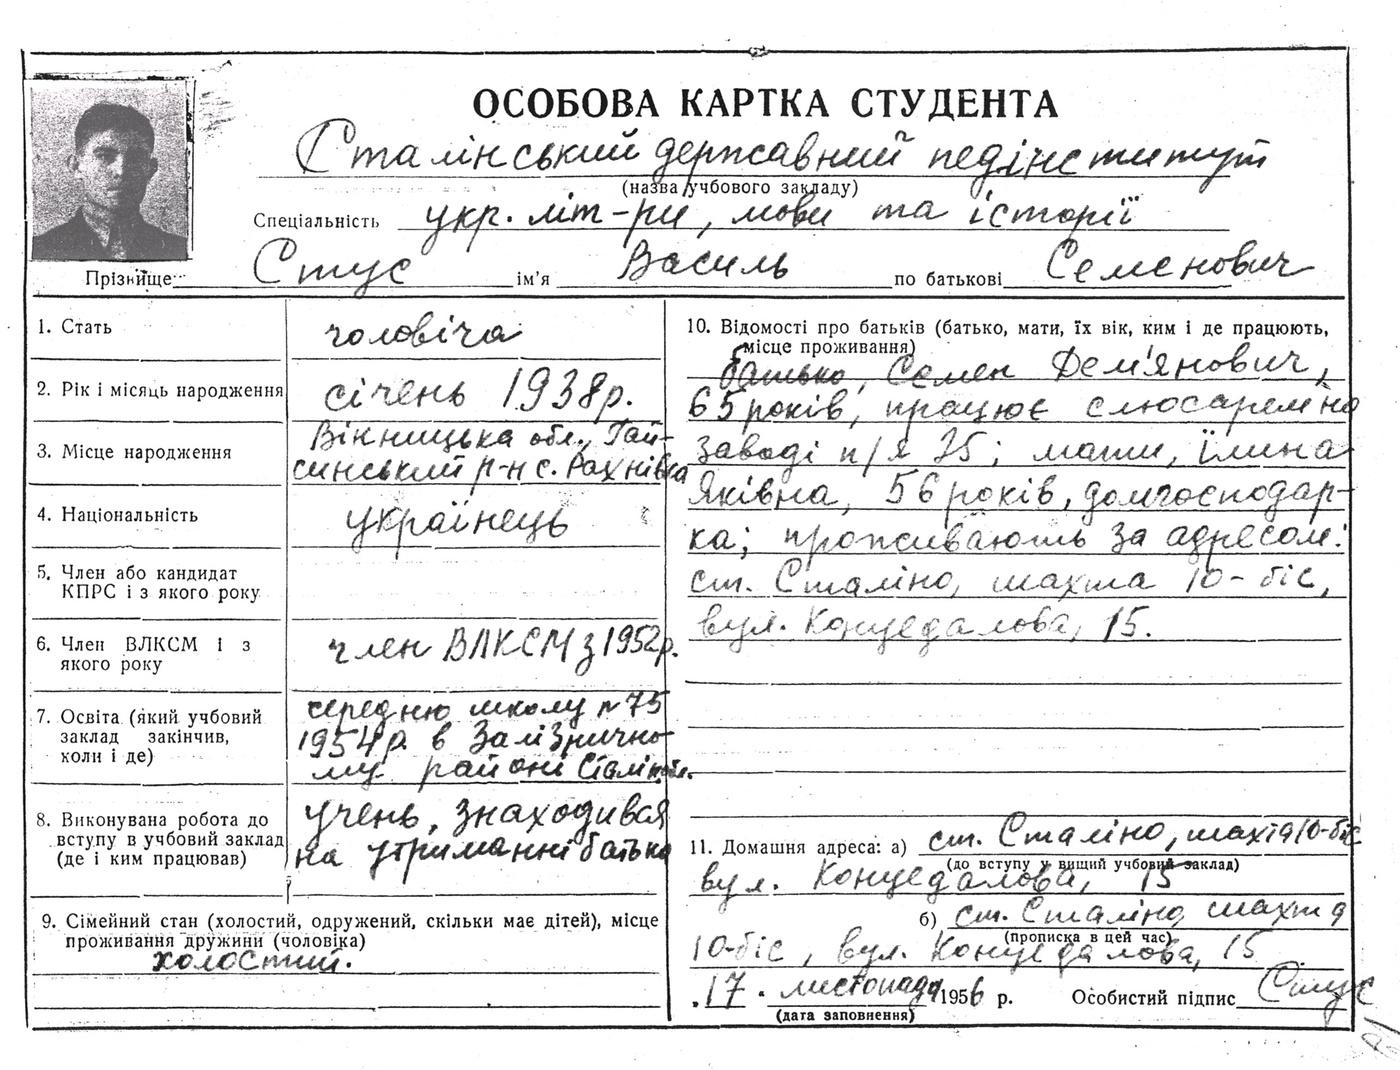 ОСОБОВА КАРТКА СТУДЕНТА
Сталінський державний педінститут
(назва учбового закладу)
Спеціальність укр. літ-ри, мови та історії
Прізвище Стус ім'я Василь по батькові Семенович
1. Стать чоловіча
2. Рік і місяць народження січень 1938р.
3. Місце народження Вінницька обл., Гай-
синський р-н с. Рахнівка
4. Національність українець
5. Член або кандидат
КПРС і з якого року
6. Член ВЛКСМ і з
якого року член ВЛКСМ з 1952р.
7. Освіта (який учбовий
заклад закінчив,
коли і де)
середню школу №75
1954р. в Залізнично-
му районі Сталін. обл.
8. Виконувана робота до
вступу в учбовий заклад
(де і ким працював)
учень, знаходився
на утриманні батька
9. Сімейний стан (холостий, одружений, скільки має дітей), місце
проживання дружини (чоловіка)
холостий.
10. Відомості про батьків (батько, мати, їх вік, ким і де працюють,
місце проживання)
батько, Семен Дем'янович,
65 років, працює слюсарем на
заводі п/я 75; мати, Їлина
Яківна, 56 років, домгосподар-
ка; проживають за адресом:
ст. Сталіно, шахта 10-біс,
вул. Концедалова, 15.
11. Домашня адреса: а) ст. Сталіно, шахта 10-біс
(до вступу у вищий учбовий заклад)
вул. Концедалова, 15
б) ст. Сталіно, шахта
(прописка в цей час)
10-біс, вул. Концедалова, 15
17. листопада 1956 р. Особистий підпис Стус
(дата заповнення)